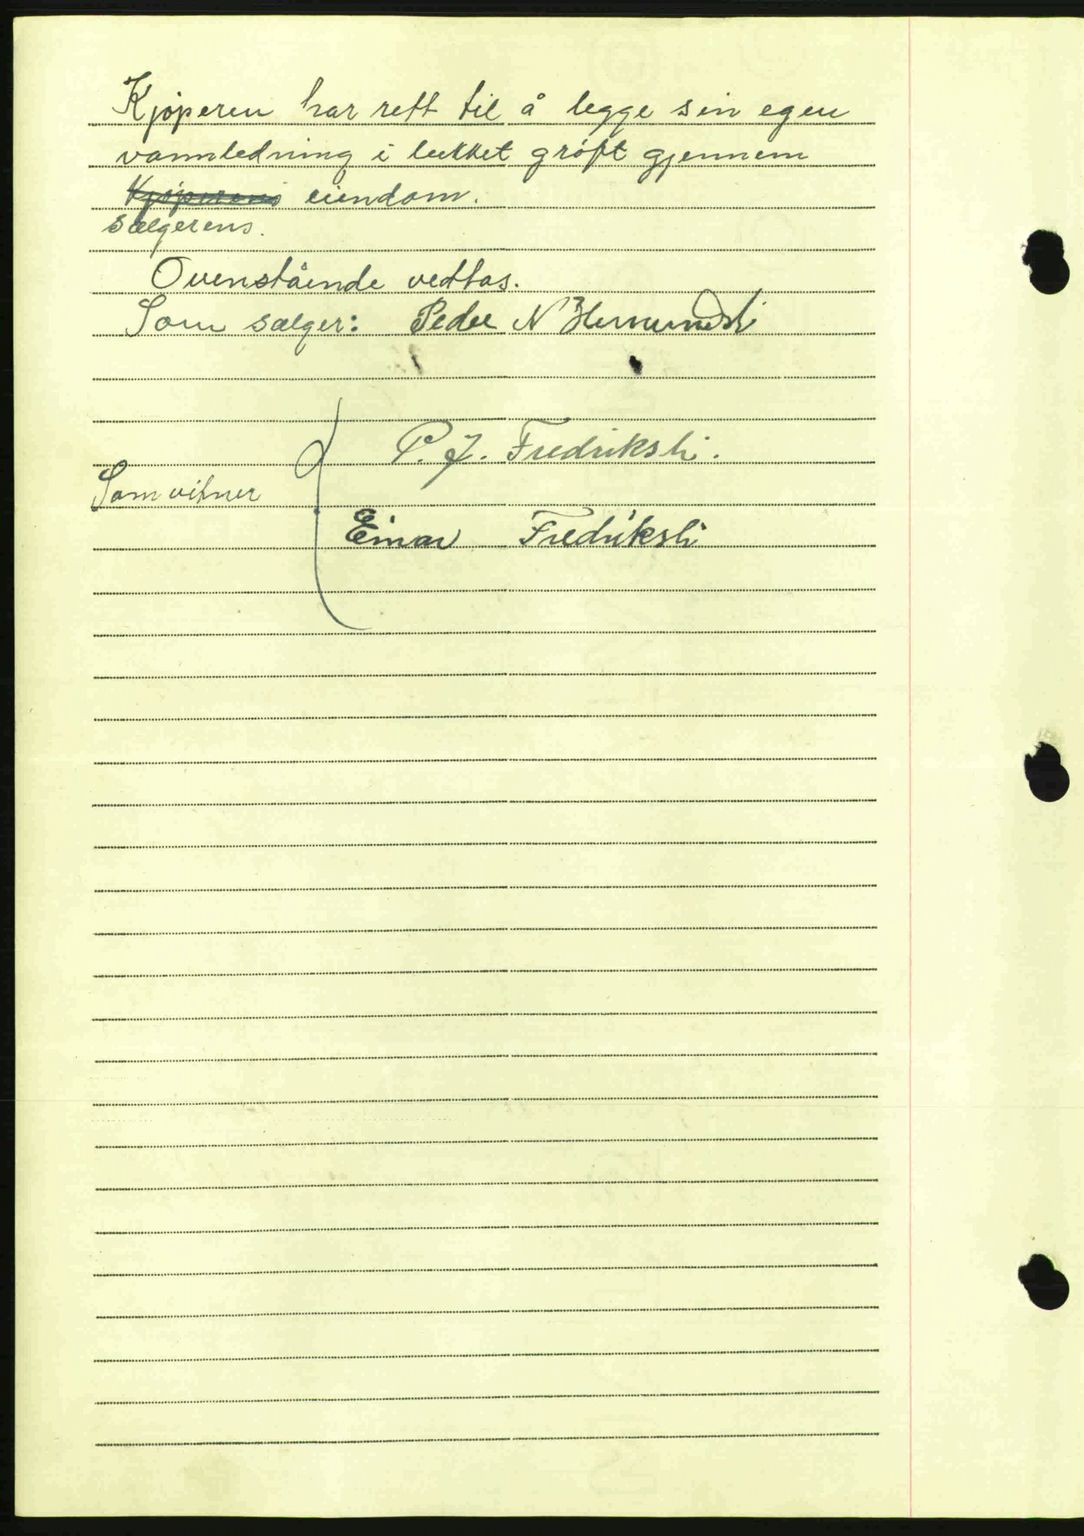 Kjøperen har rett til å legge sin egen
vannledning i lukket grøft gjennem
Kjøperens eiendom.
Sælgerens.
Ovenstående vedtas.
Som sælger: Peder N
P. J. Fredriksli.
Som vitner
Einar Fredriksli